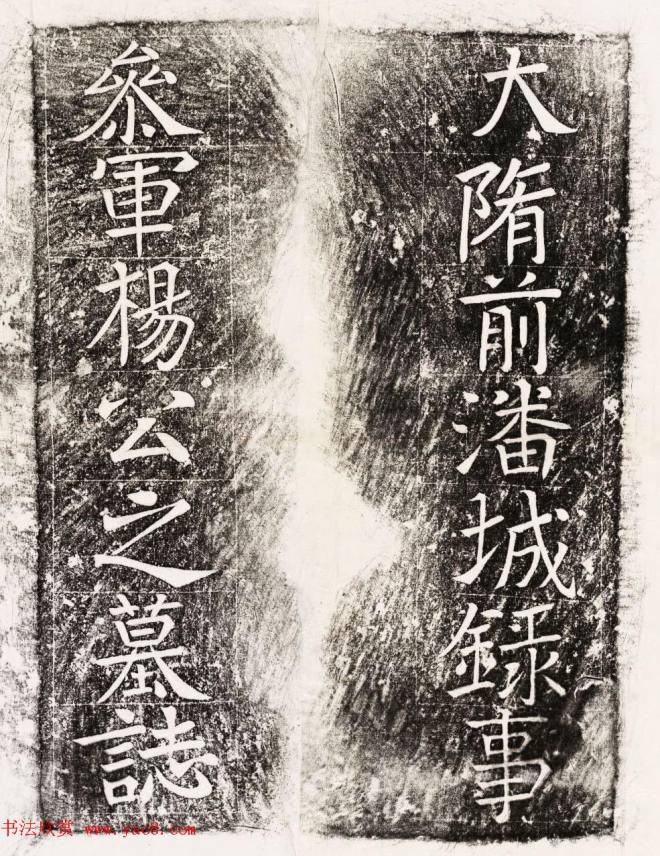 大隋前潘城録事
叅軍楊公之墓誌
书法欣赏 www.yac8.com